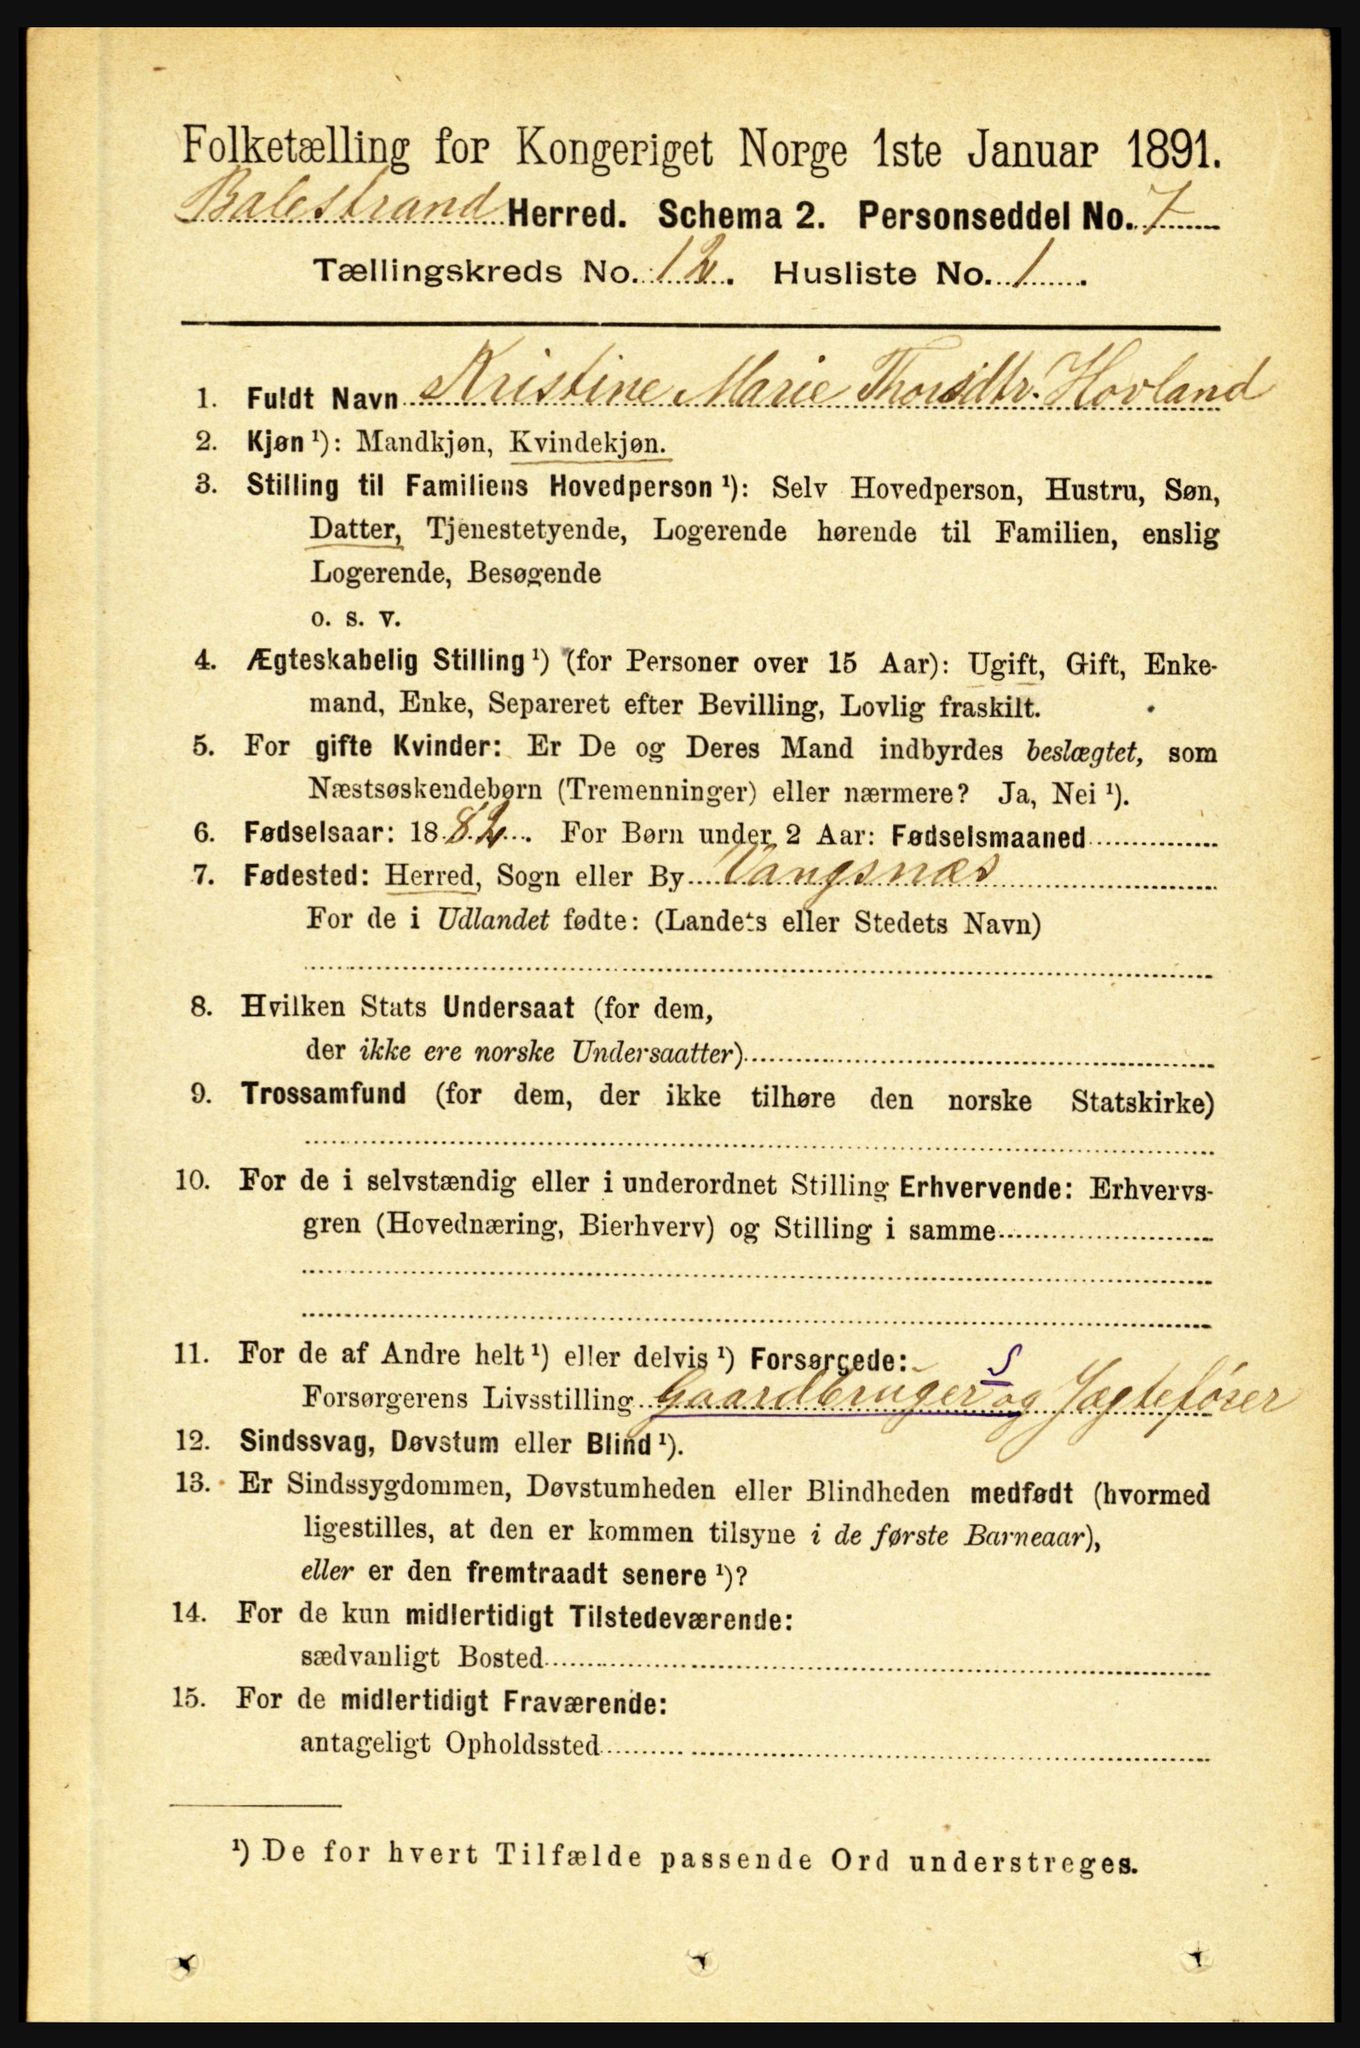 Folketælling for Kongeriget Norge 1ste Januar 1891.
Balestrand Herred. Schema 2. Personseddel No. 7
Tællingskreds No. 12. Husliste No. 1.
1. Fuldt Navn Kristine Marie Thorsdtr. Hovland
2. Kjøn ¹): Mandkjøn, Kvindekjøn.
3. Stilling til Familiens Hovedperson ¹): Selv Hovedperson, Hustru, Søn,
Datter, Tjenestetyende, Logerende hørende til Familien, enslig
Logerende, Besøgende
o. s. v.
4. Ægteskabelig Stilling ¹) (for Personer over 15 Aar): Ugift, Gift, Enke-
mand, Enke, Separeret efter Bevilling, Lovlig fraskilt.
5. For gifte Kvinder: Er De og Deres Mand indbyrdes beslægtet, som
Næstsøskendebørn (Tremenninger) eller nærmere? Ja, Nei ¹).
6. Fødselsaar: 1882. For Børn under 2 Aar: Fødselsmaaned
7. Fødested: Herred, Sogn eller By Vangsnæs
For de i Udlandet fødte: (Landets eller Stedets Navn)
8. Hvilken Stats Undersaat (for dem,
der ikke ere norske Undersaatter)
9. Trossamfund (for dem, der ikke tilhøre den norske Statskirke)
10. For de i selvstændig eller i underordnet Stilling Erhvervende: Erhvervs-
gren (Hovednæring, Bierhverv) og Stilling i samme
11. For de af Andre helt ¹) eller delvis ¹) Forsørgede: S
Forsørgerens Livsstilling Gaardbruger og Jægtefører
12. Sindssvag, Døvstum eller Blind ¹).
13. Er Sindssygdommen, Døvstumheden eller Blindheden medfødt (hvormed
ligestilles, at den er kommen tilsyne i de første Barneaar),
eller er den fremtraadt senere ¹)?
14. For de kun midlertidigt Tilstedeværende:
sædvanligt Bosted
15. For de midlertidigt Fraværende:
antageligt Opholdssted
¹) De for hvert Tilfælde passende Ord understreges.